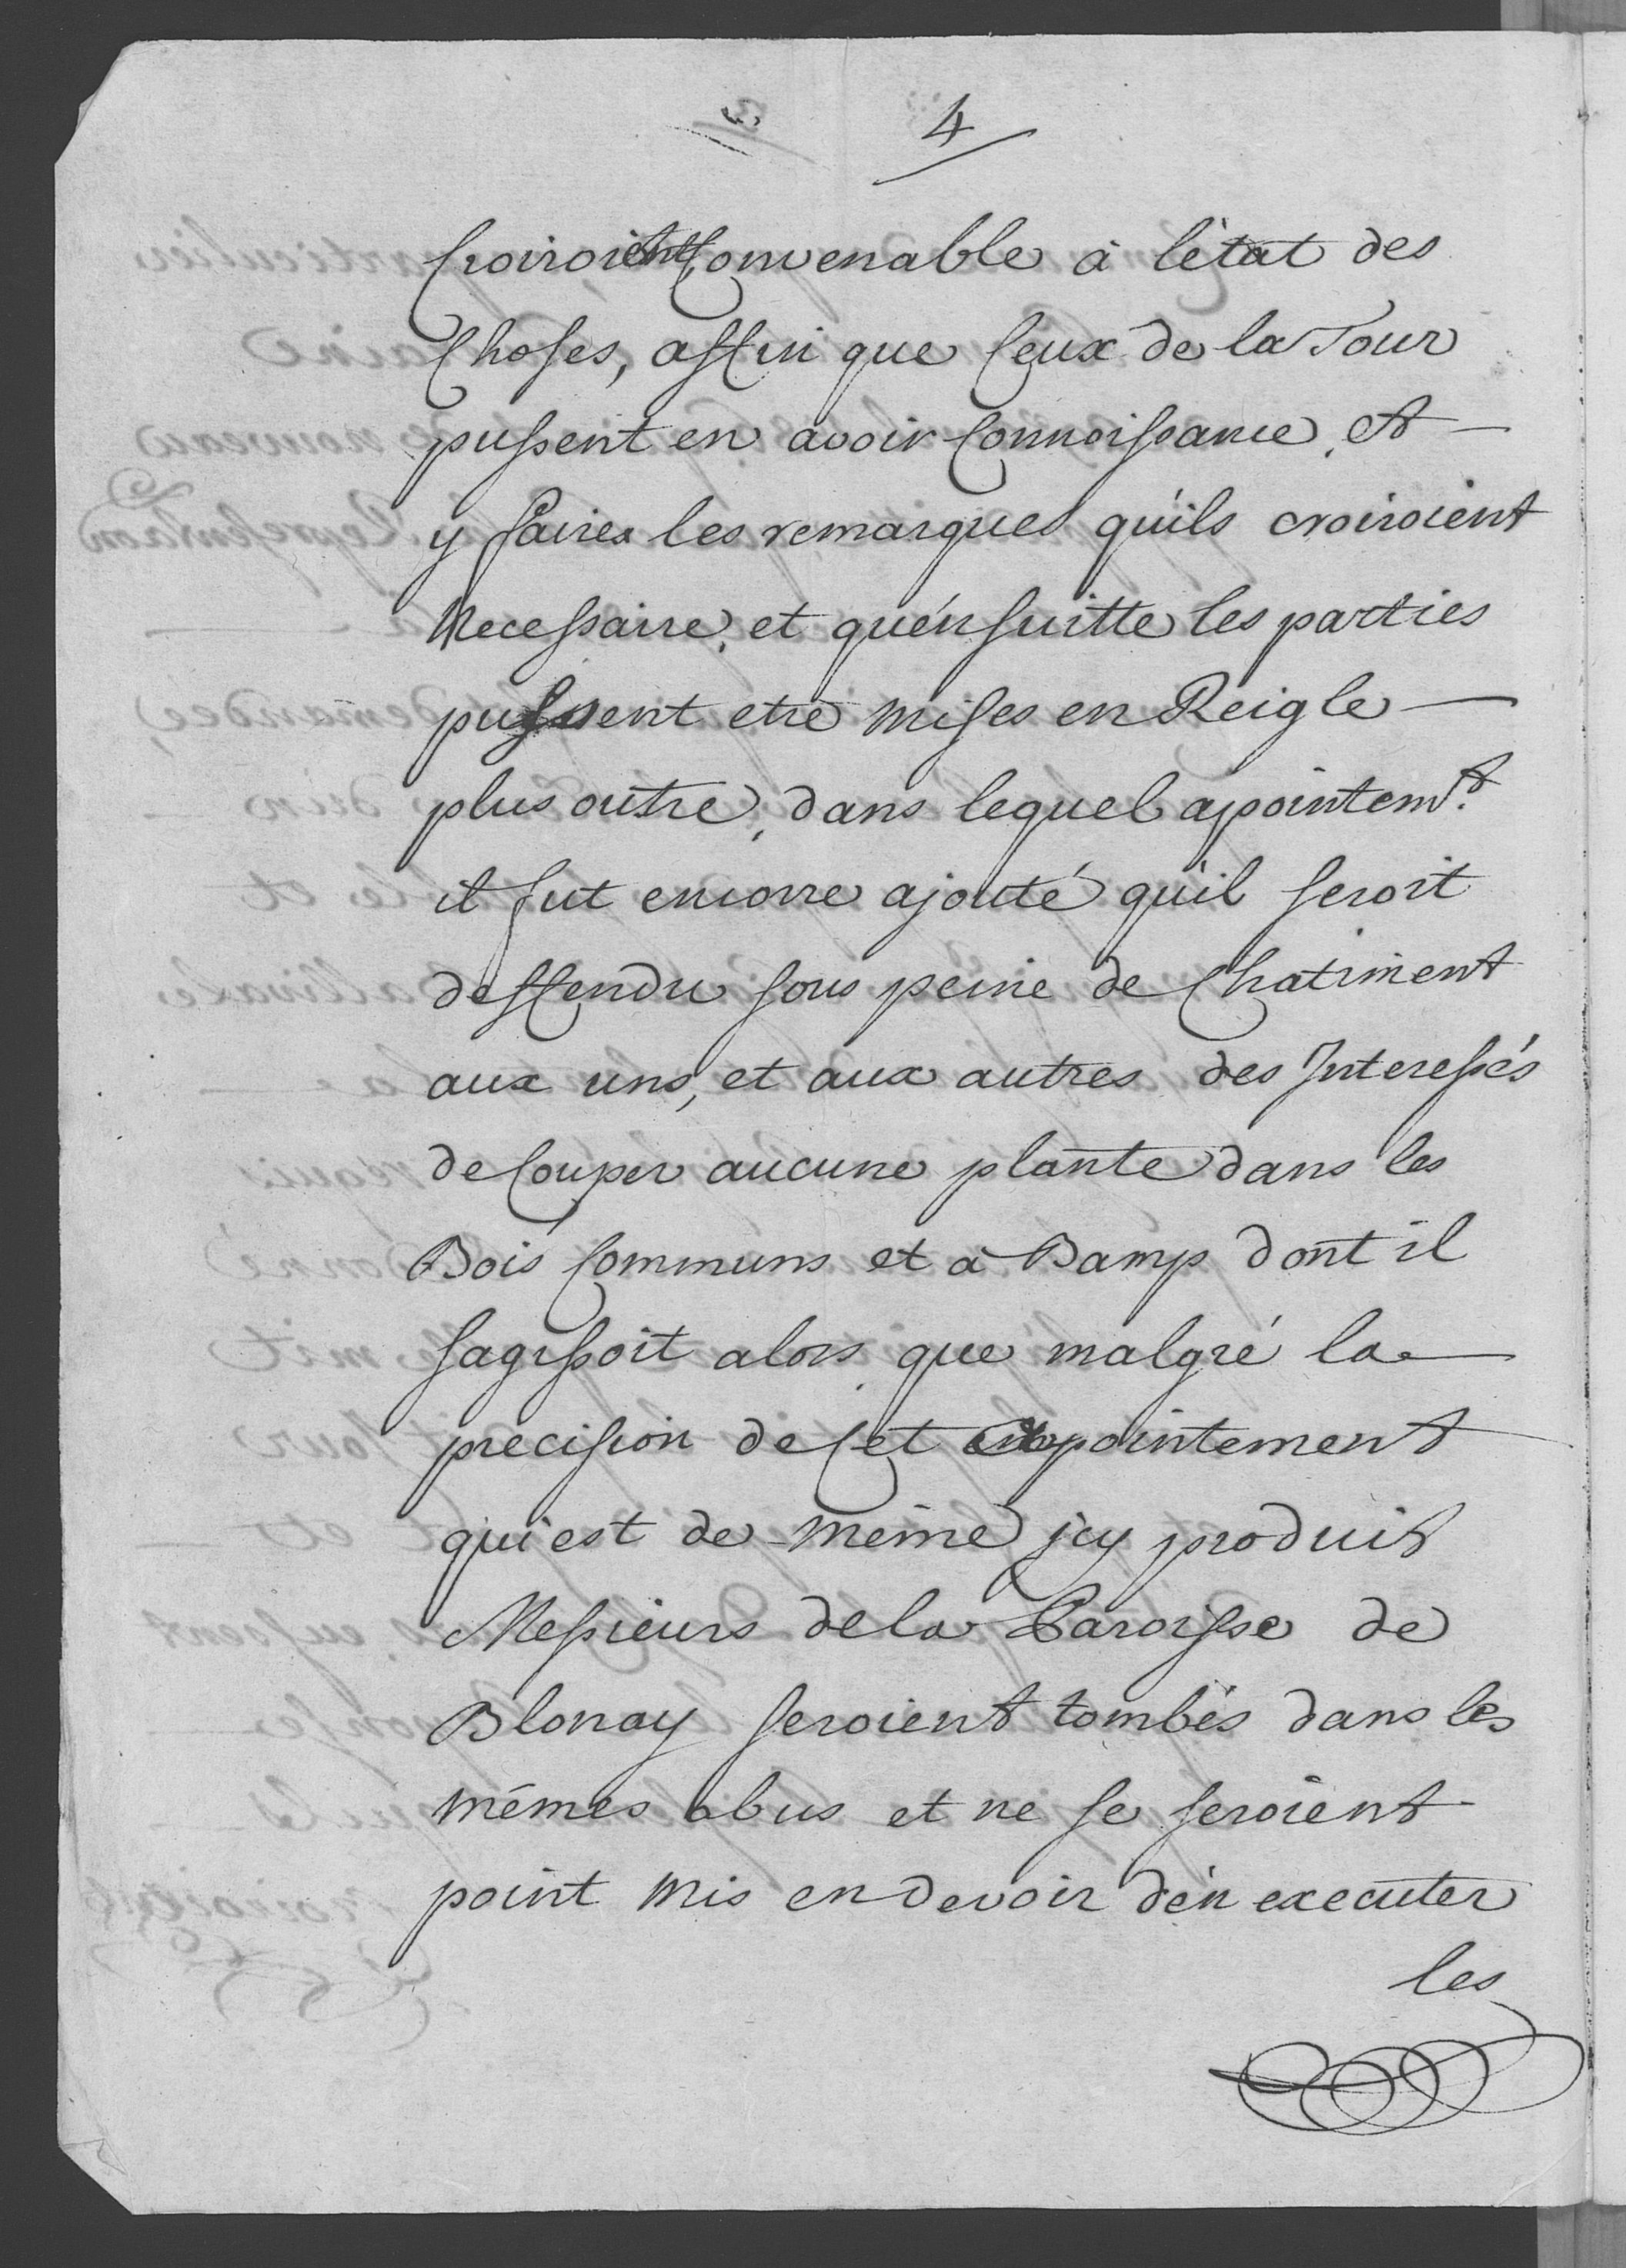 4
Croiroient Convenable à l'état des
Choses, affin que Ceux de la Tour
pussent en avoir Connoissance, et
y faire les remarques qu'ils croiroient
Necessaire, et qu'énsuitte les parties
pussent etre mises en Reigle
plus outre, dans lequel apointemt.
il fut encorre ajouté qu'il seroit
deffendu sous peine de Chatiment
aux uns, et aux autres des Interessés
de Couper aucune plante dans les
Bois Communs et à Bamp dont il
sagissoit alors que malgré la
precision de Cet apointement
qui est de même jcy produit
Messieurs de la Paroisse de
Blonay seroient tombés dans les
mémes abus et ne se seroient
point mis en devoir d'én executer
les